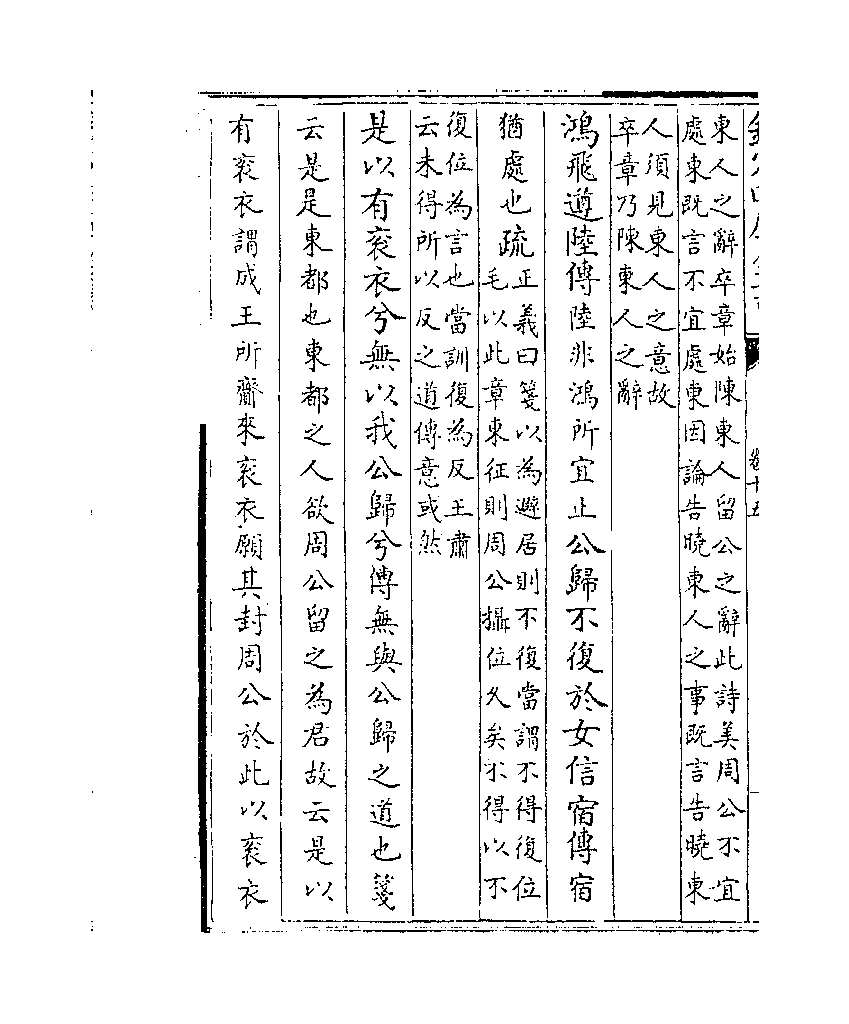 卷十五
東人之辭卒章始陳東人留公之辭此詩美周公不宜
處東既言不宜處東因論告曉東人之事既言告曉東
人須見東人之意故
卒章乃陳東人之辭
鴻飛遵陸傳陸非鴻所宜止公歸不復於女信宿傳宿
猶處也疏
正義曰箋以為避居則不復當謂不得復位
毛以此章東征則周公攝位久矣不得以不
復位為言也當訓復為反王肅
云未得所以反之道傳意或然
是以有袞衣兮無以我公歸兮傳無與公歸之道也箋
云是是東都也東都之人欲周公留之為君故云是以
有袞衣謂成王所齎來袞衣願其封周公於此以袞衣